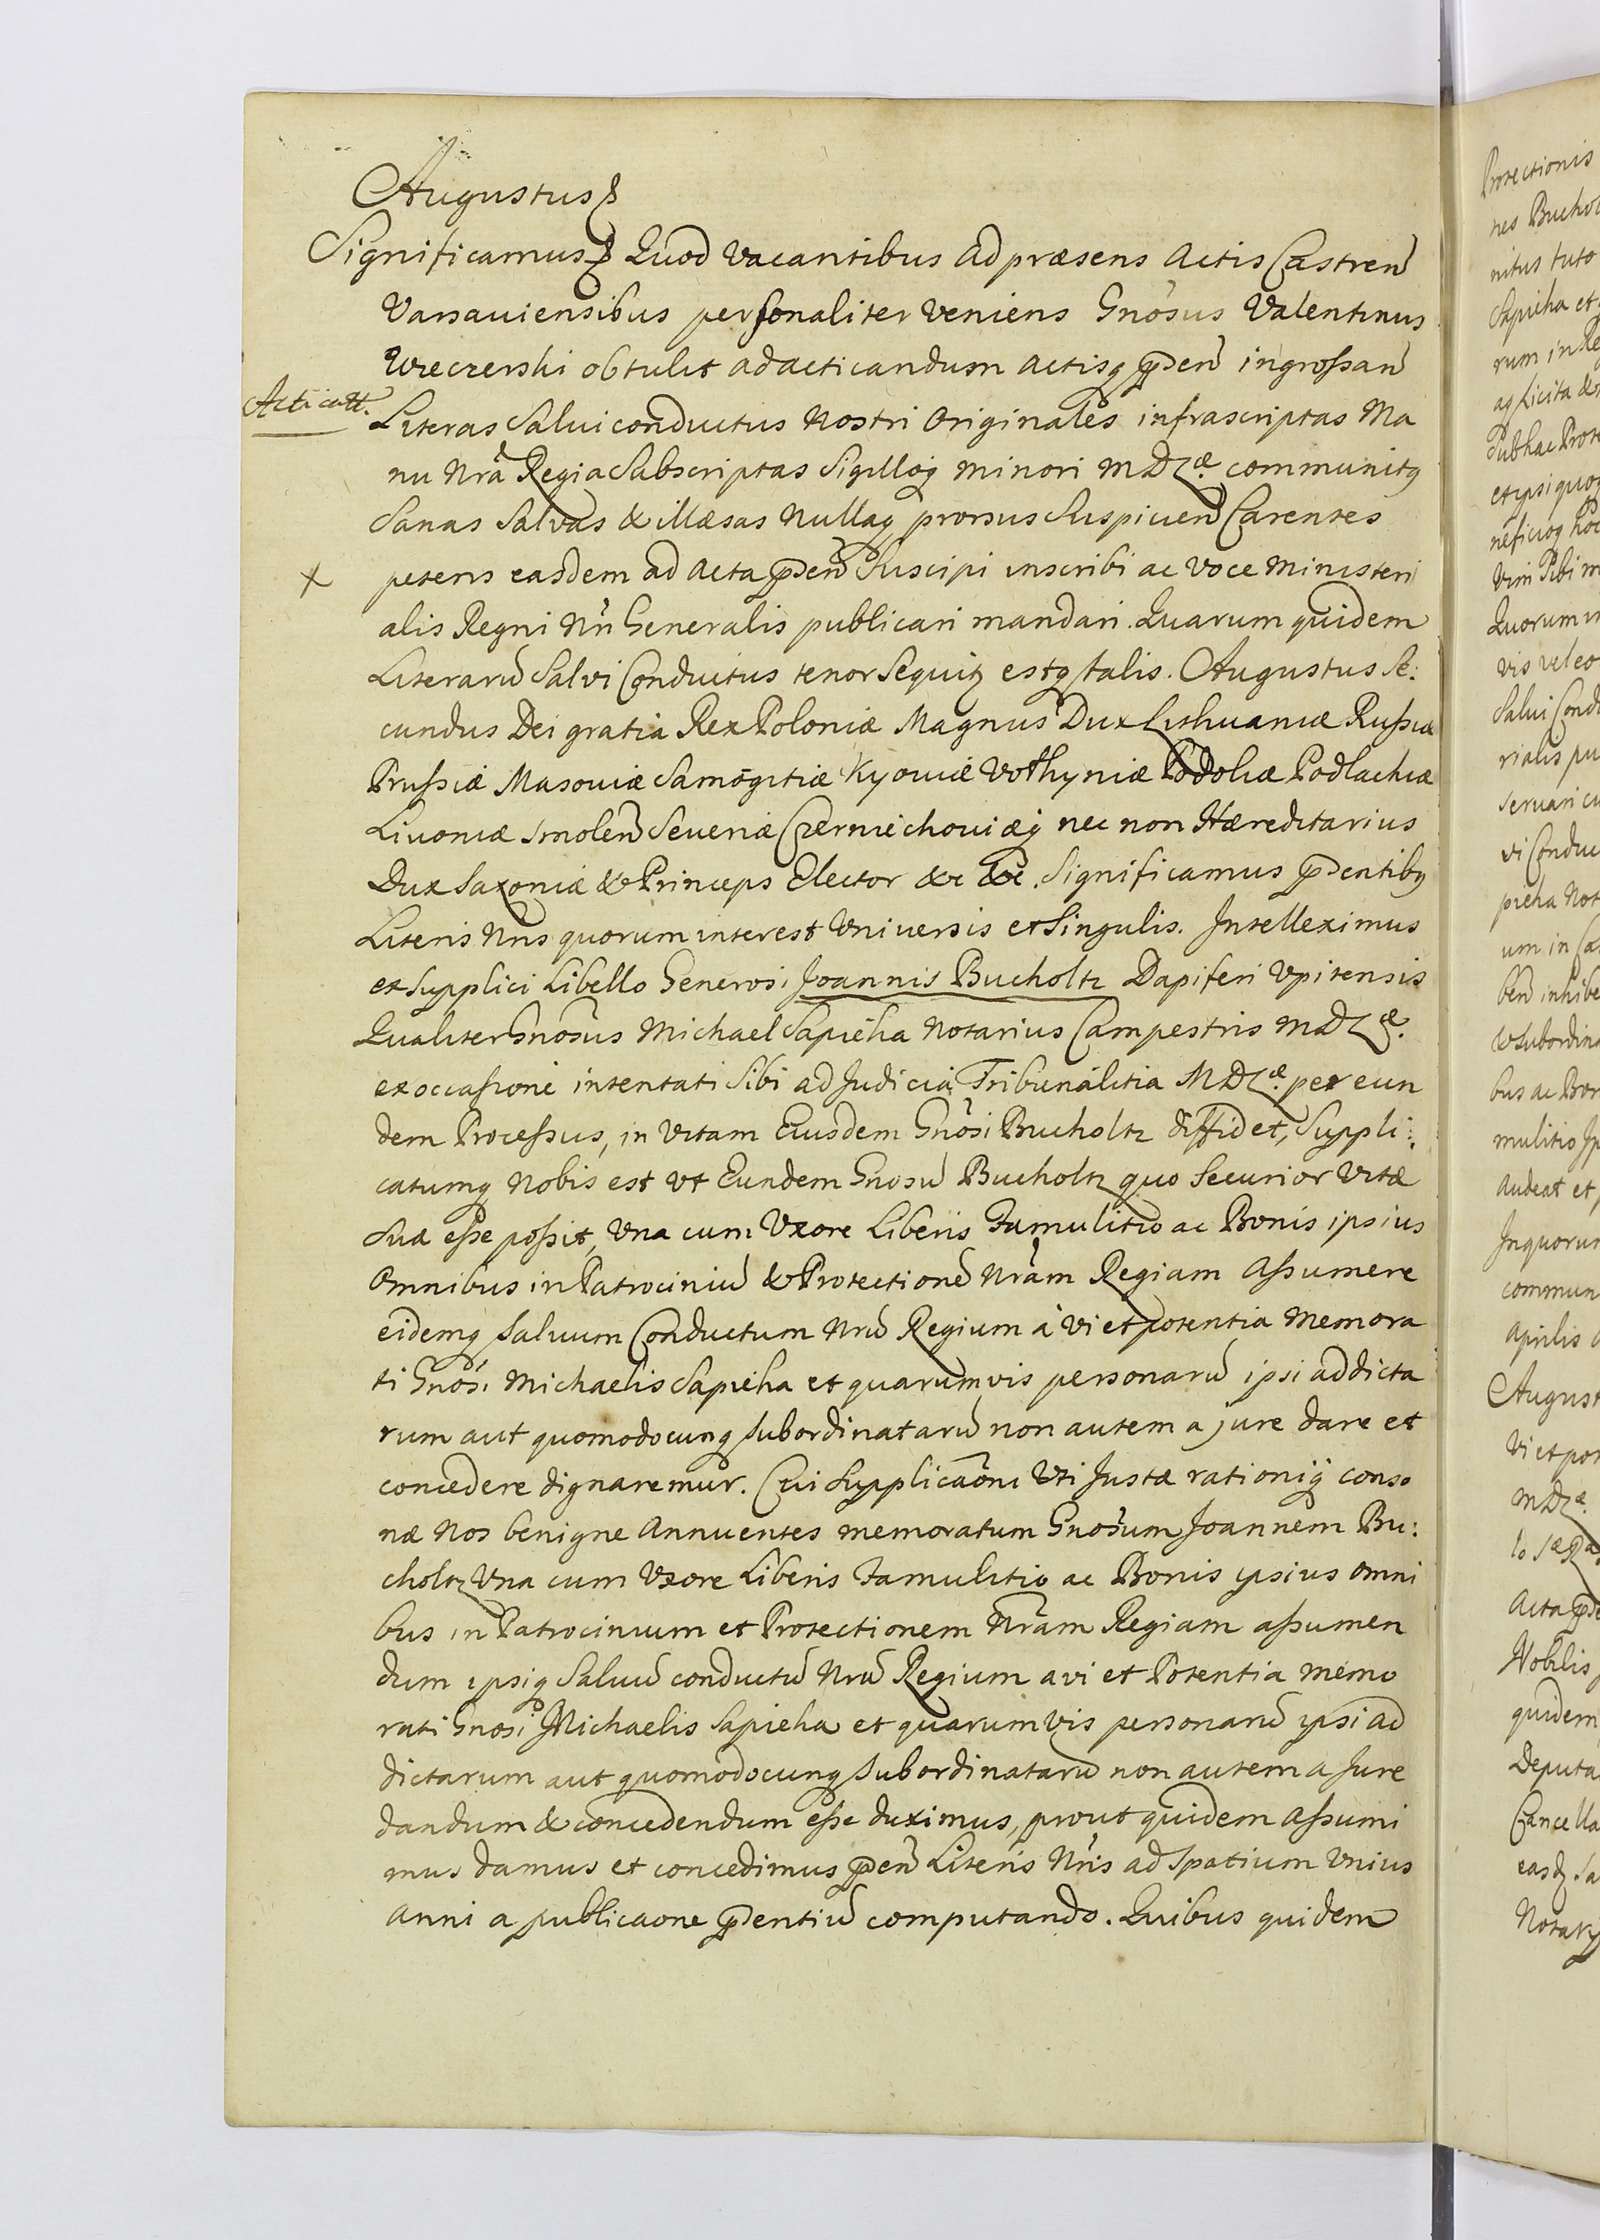 Augustus
Significamus Quod vacantibus ad præsens Actis Castren
Varsauiensibus personaliter veniens Gnosus Valentinus
Wieczerski obtulit ad acticandum actisq pñsen ingrossan
Acticatt.
Literas Salui conductus Nostri Originales infrascriptas Ma
nu Nrã Regia Subscriptas Sigilloq minori MDLæ communitq
Sanas Salvas & illæsas Nullaq prorsus Suspicien Carentes
x petens easdem ad Acta pñsen Suscipi inscribi ac voce Ministeri
alis Regni Nri Generalis publicari mandari. Quarum quidem
Literarũ Salvi Conductus tenor Sequitz estq talis. Augustus Se:
cundus Dei gratia Rex Poloniæ Magnus Dux Lithuaniæ Russiæ
Prussiæ Masouiæ Samogitiæ Kyouiæ Volhyniæ Podoliæ Podlachiæ
Liuoniæ Smolen Seueriæ Czerniechouiæq nec non Hæreditarius
Dux Saxoniæ & Princeps Elector &c &c. Significamus pñsentibq
Literis Nris quorum interest Vniuersis et Singulis. Intelleximus
ex Supplici Libello Generosi Joannis Bucholtz Dapiferi Vpitensis
Qualiter Gnosus Michael Sapieha Notarius Campestris MDLæ.
ex occasione intentati Sibi ad Judicia Tribunalitia MDLæ. per eun
dem Processus, in vitam Eiusdem Gnosi Bucholtz diffidet, Suppli:
catumq Nobis est vt Eundem Gnosũ Bucholtz quo Securior vitæ
Suæ esse possit, Vna cum Vxore Liberis Famulitio ac Bonis ipsius
Omnibus in Patrociniũ & Protectionẽ Nrãm Regiam Assumere
eidemq Saluum Conductum Nrũ Regium à vi et potentia Memora
ti Gnosi Michaelis Sapieha et quarumvis personarũ ipsi addicta
rum aut quomodocunq Subordinatarũ non autem a jure dare et
concedere dignaremur. Cui Supplicaõni Vti Justæ rationiq conso
næ Nos benigne Annuentes memoratum Gnosum Joannem Bu:
choltz Vna cum Vxore Liberis Famulitio ac Bonis ipsius omni
bus in Patrocinium et Protectionem Nrãm Regiam assumen
dum ipsiq Saluũ conductũ Nrũ Regium a vi et Potentia memo
rati Gnosi Michaelis Sapieha et quarumvis personarũ ipsi ad
dictarum aut quomodocunq Subordinatarũ non autem a Jure
dandum & concedendum esse duximus, prout quidem Assumi
mus damus et concedimus pñsen Literis Nris ad Spatium Vnius
Anni a publicaone pñsentiũ computando. Quibus quidem
Protectionis
nitus tuto
Sapieha et
rum in Re
aq Licita
et ipsi quoq
Quorum in
vis vel eo
Salui Condu
rialis pu
seruari cu
vi Conduc
pieha Not
um in Ca
& Subordina
bus ac Bon
mulitio Ip
Audeat et
In quorum
commun
Aprilis
August
Vi et pot
MDLæ.
Acta pñse
Nobilis
quidem
Deputa
Cancella
Notary